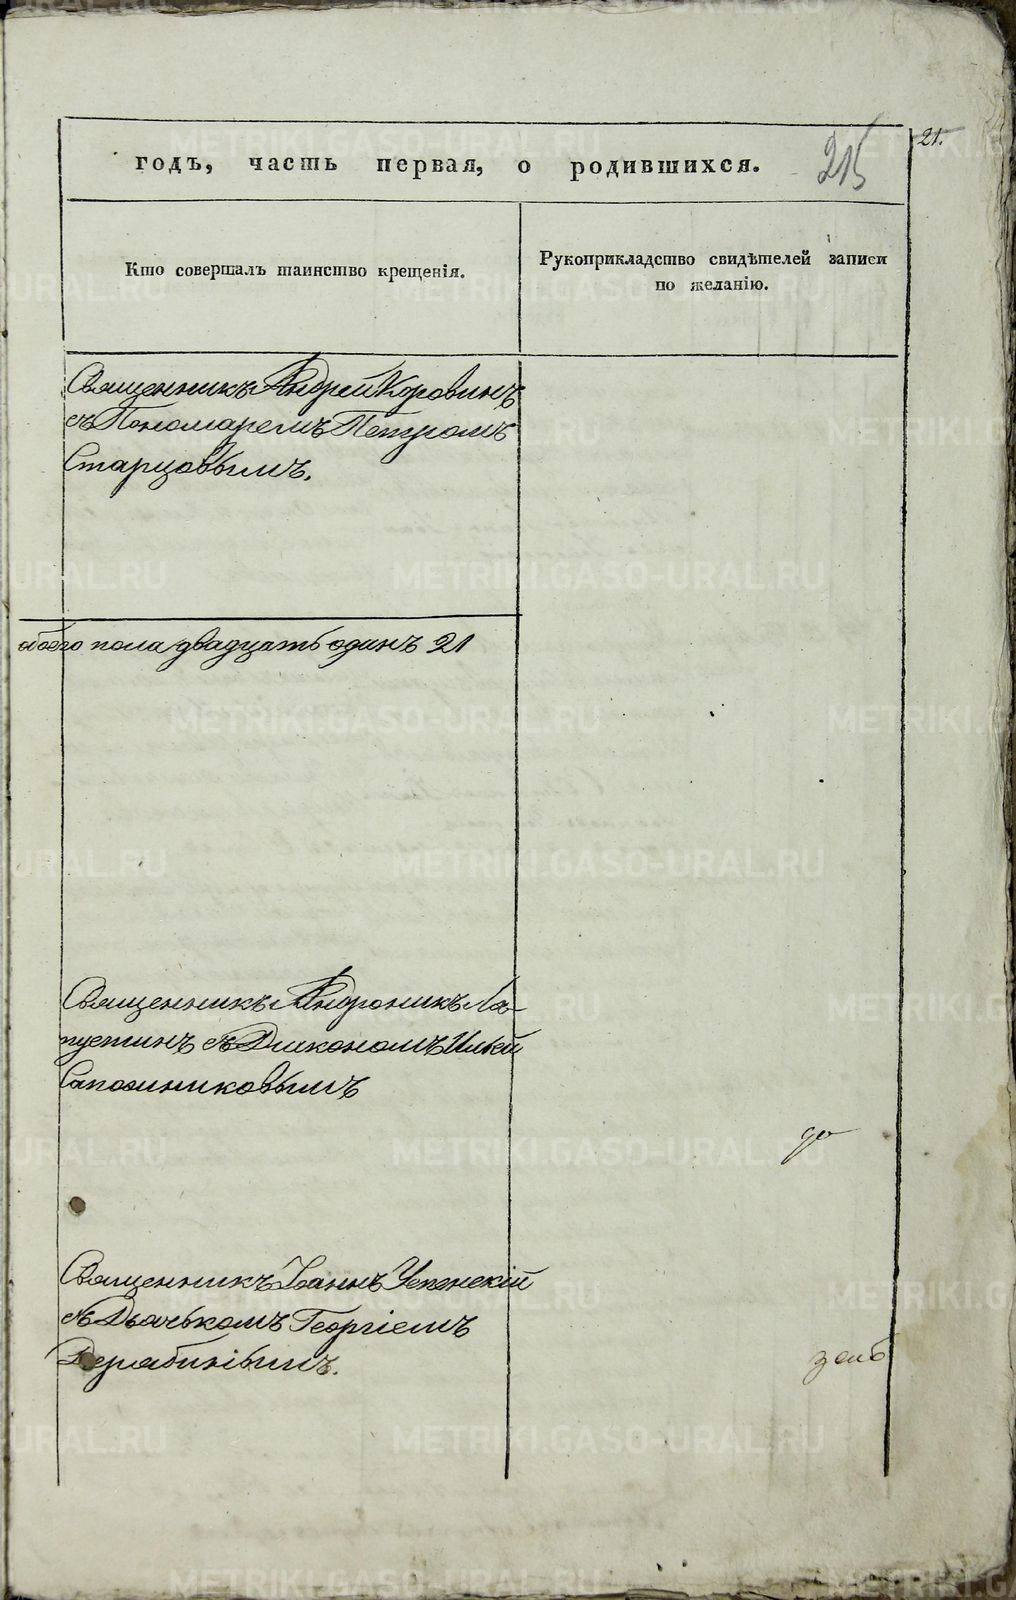 21.
годъ, часть первая, о родившихся. 215
Кто совершалъ таинство крещенія.
Рукоприкладство свидѣтелей записи
по желанію.
Священникъ Андрей Коровинъ
съ Пономаремъ Петромъ
Старцовымъ.
обоего пола двадцать одинъ 21
Священникъ Андроникъ Ла-
пустинъ съ Диакономъ Ильей
Сапожниковымъ
Священникъ Іоаннъ Успенскій
съ Дьячькомъ Георгіемъ
Дерябинымъ.
METRIKI.GASO-URAL.RU